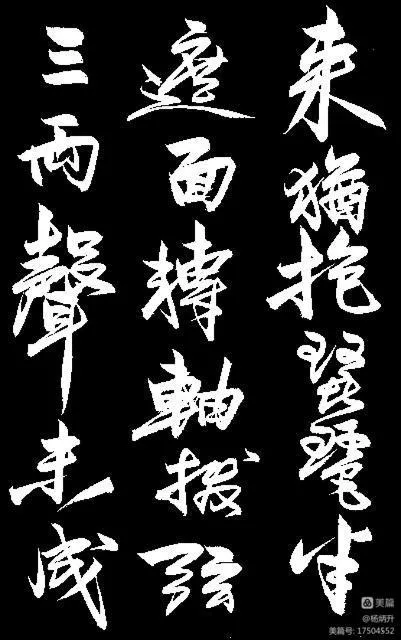 来猶抱琵琶半
遮面轉軸撥弦
三兩聲未成
美篇
@杨炳升
美篇号: 17504552